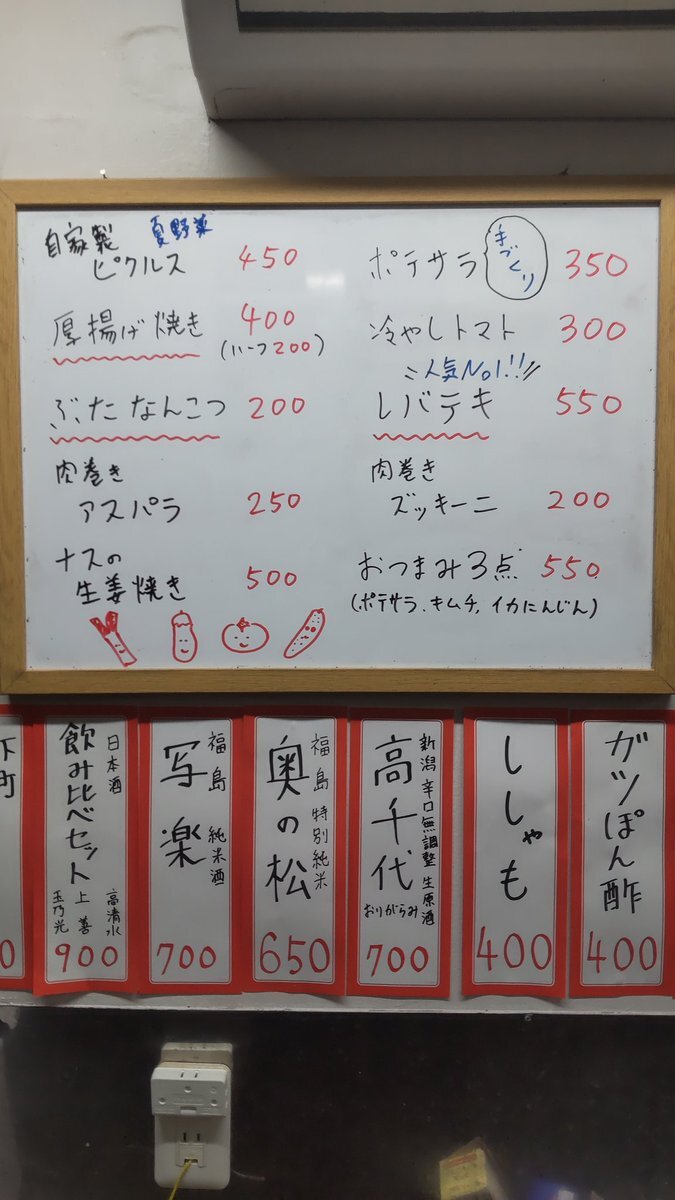 自家製 夏野菜
ピクルス 450
厚揚げ焼き 400
(ハーフ200)
ぶたなんこつ 200
肉巻き
アスパラ 250
ナスの
生姜焼き 500
ポテサラ 手づくり 350
冷やしトマト 300
人気No1!!
レバテキ 550
肉巻き
ズッキーニ 200
おつまみ3点 550
(ポテサラ、キムチ、イカにんじん)
ガツぽん酢
400
ししゃも
400
新潟 辛口無調整 生原酒
高千代
おりがらみ
700
福島 特別純米
奥の松
650
福島 純米酒
写楽
700
日本酒
飲み比べセット
高清水
上善
玉乃光
900
下町
0